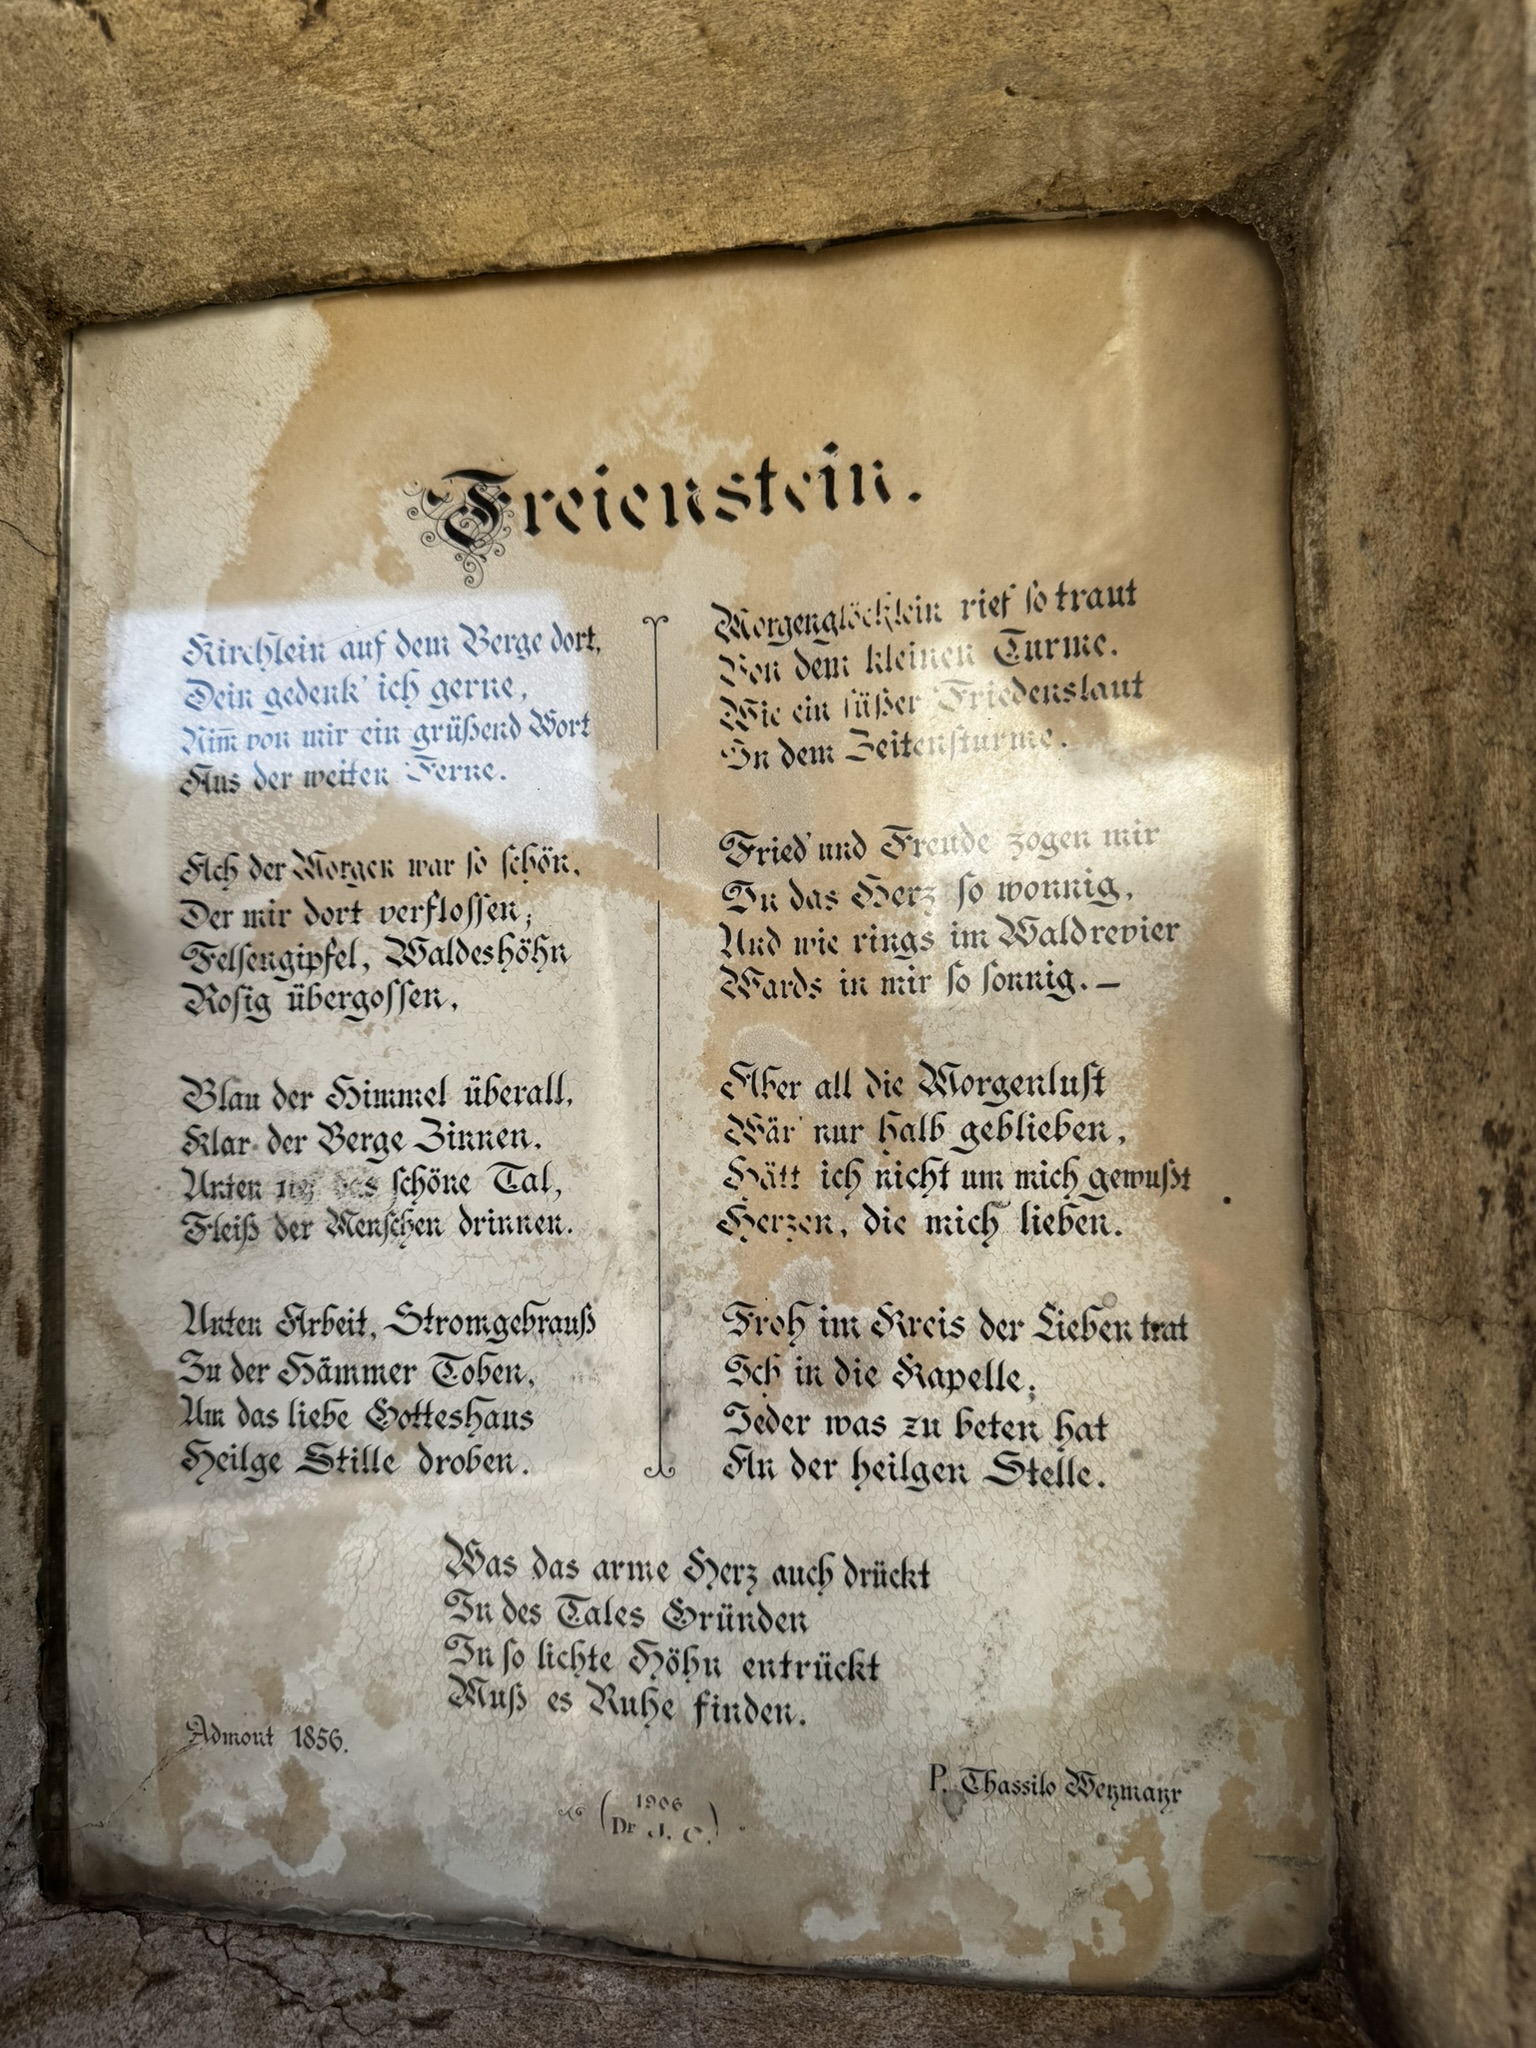 Freienstein.
Kirchlein auf dem Berge dort,
Dein gedenk' ich gerne,
Nim̅ von mir ein grüßend Wort
Aus der weiten Ferne.
Ach der Morgen war so schön,
Der mir dort verflossen;
Felsengipfel, Waldeshöhn
Rosig übergossen,
Blau der Himmel überall,
Klar der Berge Zinnen,
Unten das schöne Tal,
Fleiß der Menschen drinnen.
Unten Arbeit, Stromgebrauß
Zu der Hämmer Toben,
Um das liebe Gotteshaus
Heilge Stille droben.
Morgenglöcklein rief so traut
Von dem kleinen Turme,
Wie ein süßer Friedenslaut
In dem Zeitensturme.
Fried' und Freude zogen mir
In das Herz so wonnig,
Und wie rings im Waldrevier
Wards in mir so sonnig. –
Aber all die Morgenlust
Wär' nur halb geblieben,
Hätt ich nicht um mich gewußt
Herzen, die mich lieben.
Froh im Kreis der Lieben trat
Ich in die Kapelle;
Jeder was zu beten hat
An der heilgen Stelle.
Was das arme Herz auch drückt
In des Tales Gründen
In so lichte Höhn entrückt
Muß es Ruhe finden.
Admont 1856.
P. Thassilo Weymayr
(1906
Dr J. C.)